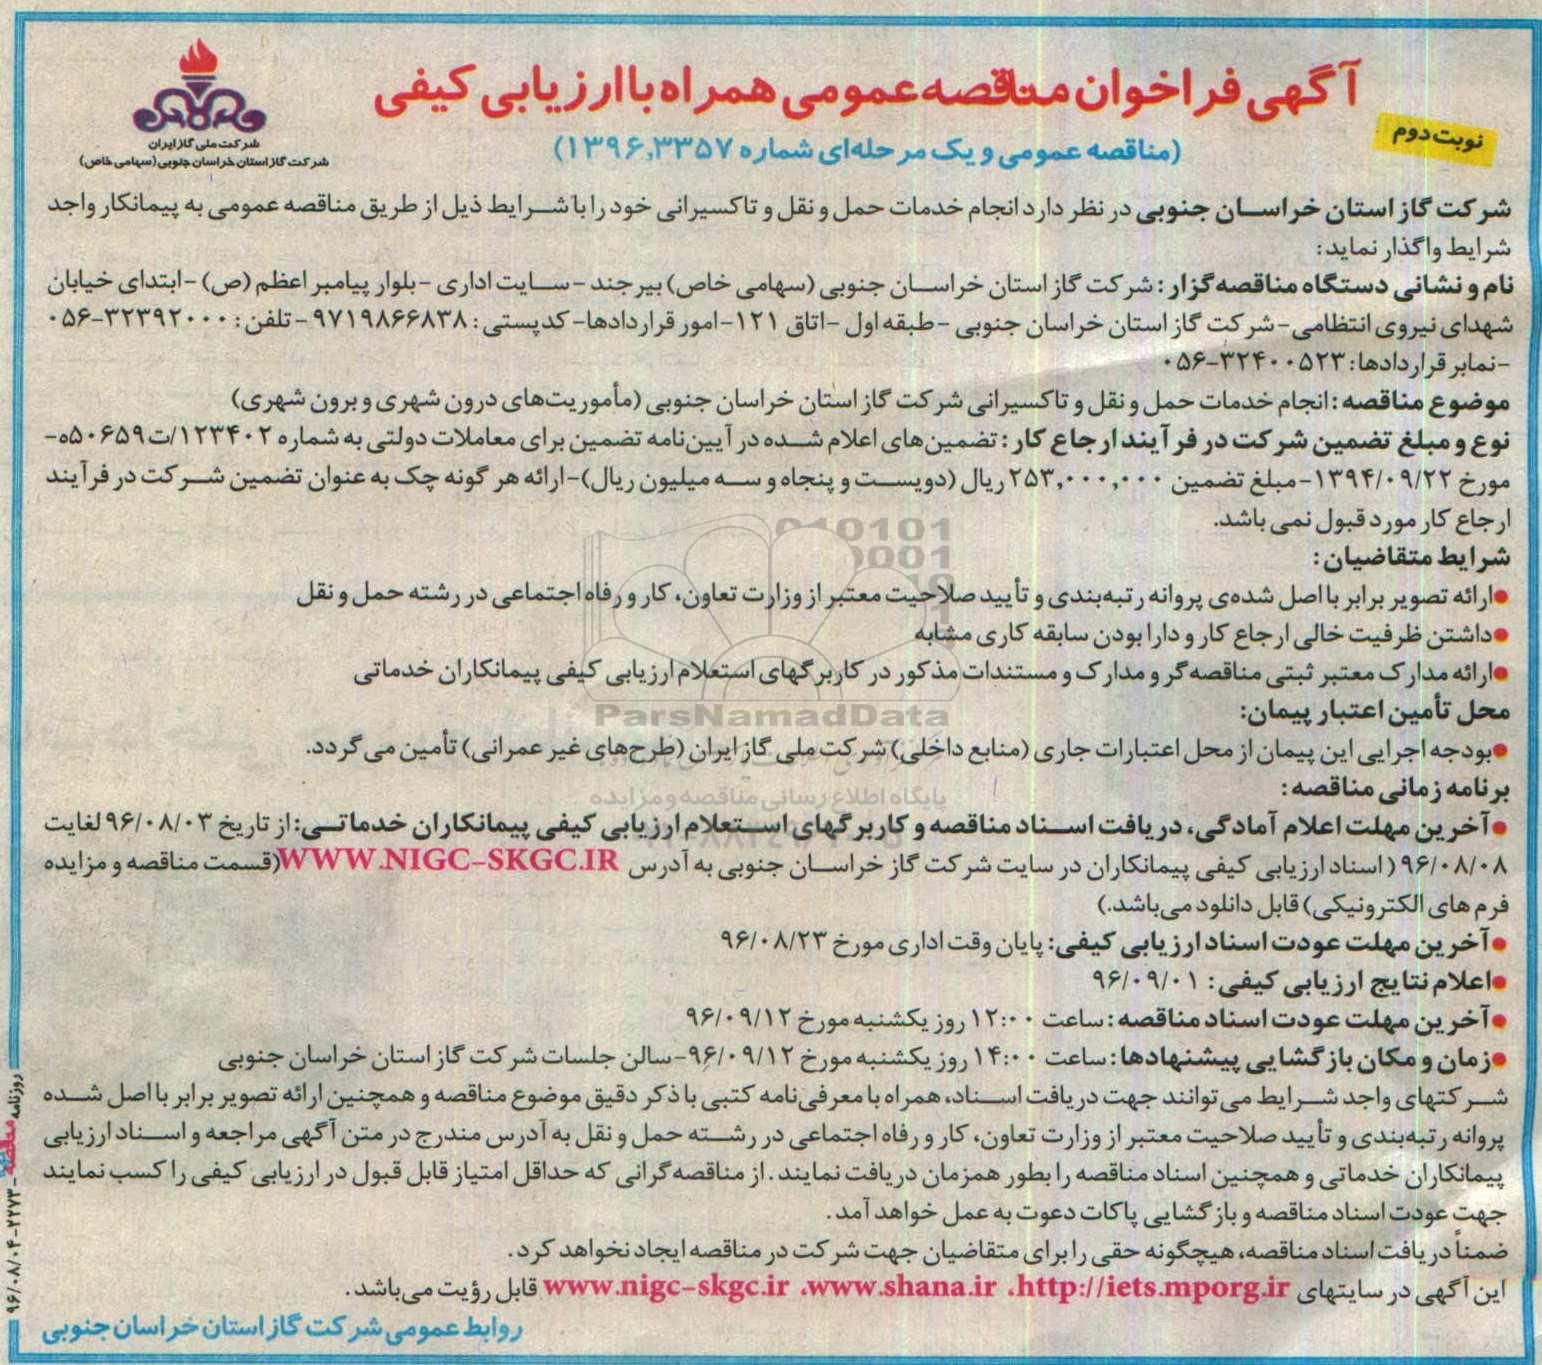 آگهی فراخوان مناقصه عمومی همراه با ارزیابی کیفی
(مناقصه عمومی و یک مرحله‌ای شماره ۱۳۹۶,۳۳۵۷)
نوبت دوم
شرکت ملی گاز ایران
شرکت گاز استان خراسان جنوبی (سهامی خاص)
شرکت گاز استان خراسان جنوبی در نظر دارد انجام خدمات حمل و نقل و تاکسیرانی خود را با شرایط ذیل از طریق مناقصه عمومی به پیمانکار واجد
شرایط واگذار نماید:
نام و نشانی دستگاه مناقصه گزار: شرکت گاز استان خراسان جنوبی (سهامی خاص) بیرجند -سایت اداری -بلوار پیامبر اعظم (ص) -ابتدای خیابان
شهدای نیروی انتظامی- شرکت گاز استان خراسان جنوبی -طبقه اول -اتاق ۱۲۱- امور قراردادها- کدپستی: ۹۷۱۹۸۶۶۸۳۸ - تلفن: ۳۲۳۹۲۰۰۰-۰۵۶
-نمابر قراردادها: ۳۲۴۰۰۵۲۳-۰۵۶
موضوع مناقصه: انجام خدمات حمل و نقل و تاکسیرانی شرکت گاز استان خراسان جنوبی (مأموریت‌های درون شهری و برون شهری)
نوع و مبلغ تضمین شرکت در فرآیند ارجاع کار: تضمین‌های اعلام شده در آیین‌نامه تضمین برای معاملات دولتی به شماره ۱۲۳۴۰۲/ت۵۰۶۵۹ه-
مورخ ۱۳۹۴/۰۹/۲۲- مبلغ تضمین ۲۵۳,۰۰۰,۰۰۰ ریال (دویست و پنجاه و سه میلیون ریال)- ارائه هر گونه چک به عنوان تضمین شرکت در فرآیند
ارجاع کار مورد قبول نمی باشد.
شرایط متقاضیان:
●ارائه تصویر برابر با اصل شده‌ی پروانه رتبه‌بندی و تأیید صلاحیت معتبر از وزارت تعاون، کار و رفاه اجتماعی در رشته حمل و نقل
●داشتن ظرفیت خالی ارجاع کار و دارا بودن سابقه کاری مشابه
●ارائه مدارک معتبر ثبتی مناقصه گر و مدارک و مستندات مذکور در کاربرگهای استعلام ارزیابی کیفی پیمانکاران خدماتی
ParsNamadData
محل تأمین اعتبار پیمان:
●بودجه اجرایی این پیمان از محل اعتبارات جاری (منابع داخلی) شرکت ملی گاز ایران (طرح‌های غیر عمرانی) تأمین می گردد.
برنامه زمانی مناقصه:
پایگاه اطلاع رسانی مناقصه و مزایده
●آخرین مهلت اعلام آمادگی، دریافت اسناد مناقصه و کاربرگهای استعلام ارزیابی کیفی پیمانکاران خدماتی: از تاریخ ۹۶/۰۸/۰۳ لغایت
۹۶/۰۸/۰۸ ( اسناد ارزیابی کیفی پیمانکاران در سایت شرکت گاز خراسان جنوبی به آدرس WWW.NIGC-SKGC.IR(قسمت مناقصه و مزایده
فرم های الکترونیکی) قابل دانلود می‌باشد.)
●آخرین مهلت عودت اسناد ارزیابی کیفی: پایان وقت اداری مورخ ۹۶/۰۸/۲۳
●اعلام نتایج ارزیابی کیفی: ۹۶/۰۹/۰۱
●آخرین مهلت عودت اسناد مناقصه: ساعت ۱۲:۰۰ روز یکشنبه مورخ ۹۶/۰۹/۱۲
●زمان و مکان بازگشایی پیشنهادها: ساعت ۱۴:۰۰ روز یکشنبه مورخ ۹۶/۰۹/۱۲- سالن جلسات شرکت گاز استان خراسان جنوبی
شرکتهای واجد شرایط می توانند جهت دریافت اسناد، همراه با معرفی‌نامه کتبی با ذکر دقیق موضوع مناقصه و همچنین ارائه تصویر برابر با اصل شده
پروانه رتبه‌بندی و تأیید صلاحیت معتبر از وزارت تعاون، کار و رفاه اجتماعی در رشته حمل و نقل به آدرس مندرج در متن آگهی مراجعه و اسناد ارزیابی
پیمانکاران خدماتی و همچنین اسناد مناقصه را بطور همزمان دریافت نمایند. از مناقصه گرانی که حداقل امتیاز قابل قبول در ارزیابی کیفی را کسب نمایند
جهت عودت اسناد مناقصه و بازگشایی پاکات دعوت به عمل خواهد آمد.
ضمناً دریافت اسناد مناقصه، هیچگونه حقی را برای متقاضیان جهت شرکت در مناقصه ایجاد نخواهد کرد.
این آگهی در سایتهای http://iets.mporg.ir، www.shana.ir، www.nigc-skgc.ir قابل رؤیت می‌باشد.
روابط عمومی شرکت گاز استان خراسان جنوبی
روزنامه مناقصه -۲۲۷۳- ۹۶/۰۸/۰۴